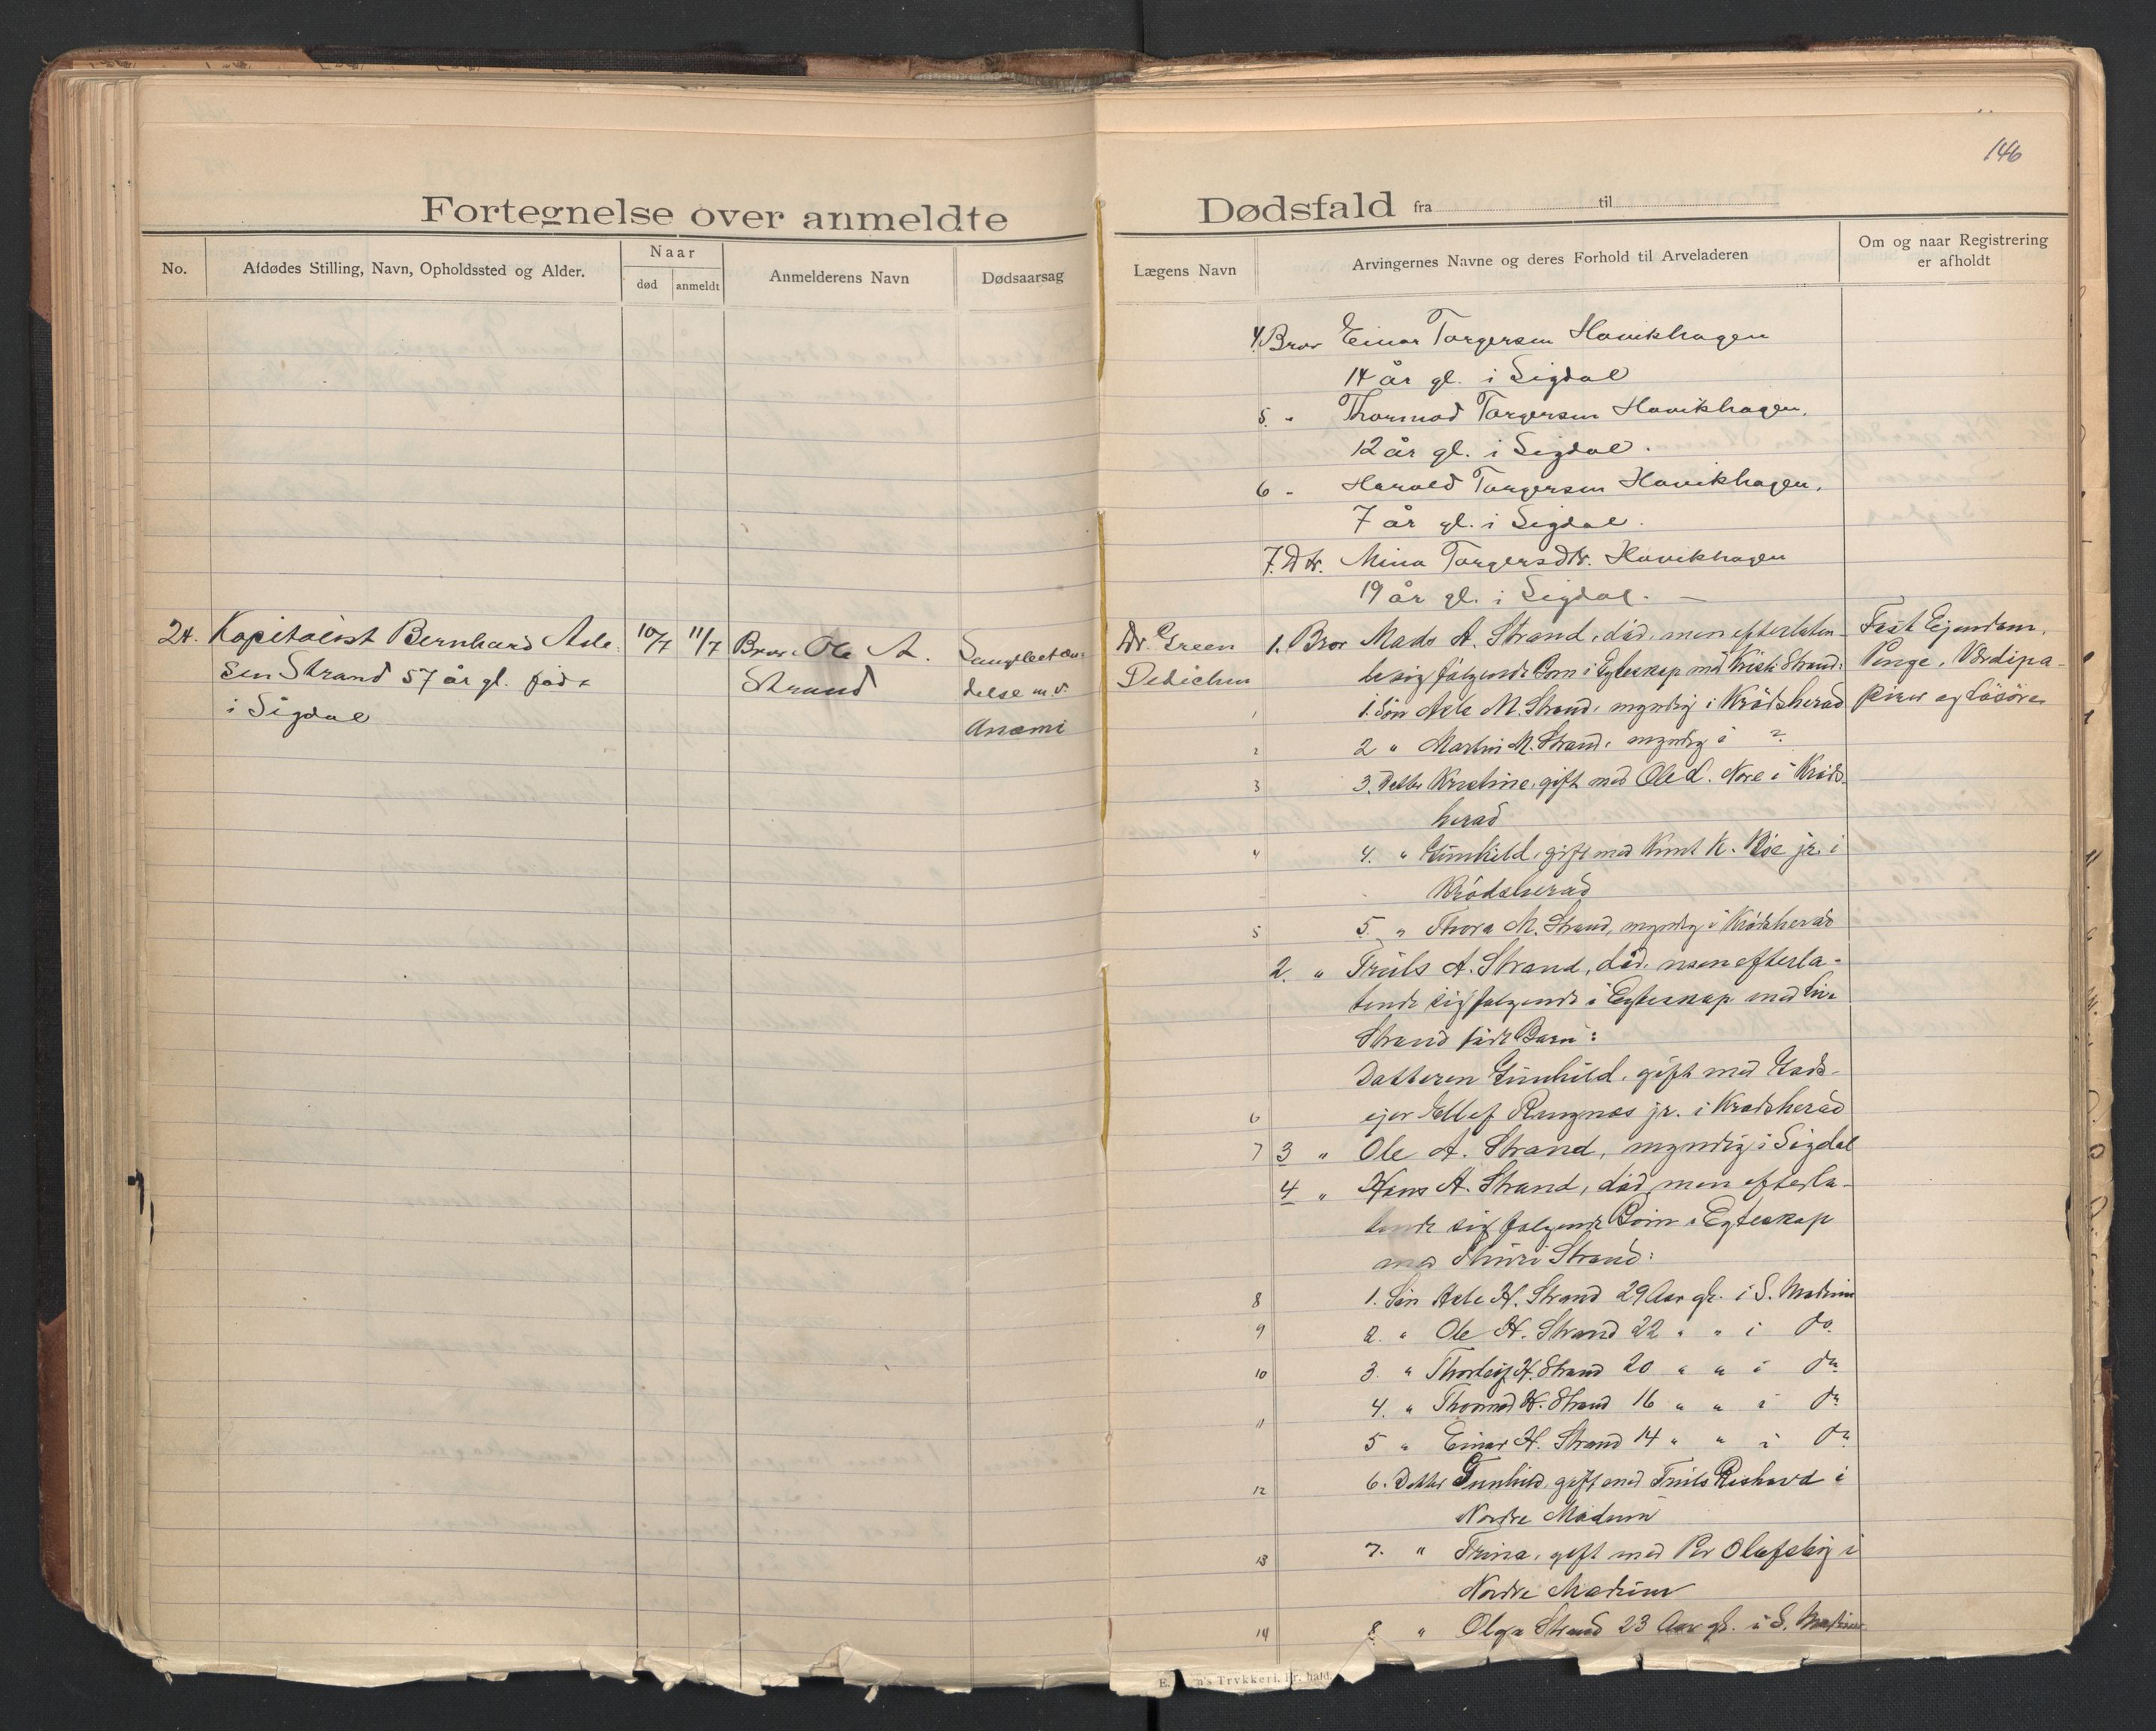 146
Fortegnelse over anmeldte Dødsfald fra til
No.
Afdødes Stilling, Navn, Opholdssted og Alder.
Naar
død
anmeldt
Anmelderens Navn
Dødsaarsag
Lægens Navn
Arvingernes Navne og deres Forhold til Arveladeren
Om og naar Registrering
er afholdt
4. Bror Einar Torgersen Hovikhagen
14 år gl. i Sigdal
5. " Thormod Torgersen Hovikhagen,
12 år gl. i Sigdal.
6 " Harald Torgersen Hovikhagen,
7 år gl. i Sigdal.
7. Dtr. Mina Torgersdtr. Hovikhagen
19 år gl. i Sigdal. —
24. Kapitalist Bernhard Asle-
sen Strand 57 år gl. född
i Sigdal
10/7
11/7
Bror. Ole A.
Strand
delse m. v.
Anæmi
Dr. Green
Dedichen
1. Bror Mads A. Strand, död, men efterlaten-
de sig følgende Børn i Egteskap med Strand:
1 1. Søn Asle M. Strand, myndig i Krödsherad
2 2 " Martin M. Strand, myndig i ?
3 3. Datter Kristine, gift med Ole L. Nore i Kröds-
herad
4 4. " Gunhild, gift med Knut K. jr. i
Krödsherad
5 5. " Thora M. Strand, myndig i Krödsherad
2. " Truls A. Strand, död, men efterla-
tende sig følgende i Egteskap med Liv
Strand född Barn:
Datteren Gunhild, gift med Gaard-
6 ejer Ellef Ringnes jr. i Krødsherad
7 3 " Ole A. Strand, myndig i Sigdal
4 " Hans A. Strand, död, men efterla-
tende sig følgende Börn i Egteskap
med Strand:
8 1. Sön Asle H. Strand 29 Aar gl. i S. Modum
9 2. " Ole H. Strand 22 " " i do.
10 3. " Thorleif H. Strand 20 " " i do
11 4. " Thormod H. Strand 16 " " i do
5 " Einar H. Strand 14 " " i do
12 6. Datter Gunhild, gift med Truls i
Nordre Modum
13 7. " Trina, gift med Per Olafsby i
Nordre Modum
14 8 " Olga Strand 23 Aar gl. i S. Modum
Fast Ejendom,
Penge, Værdipa-
pirer og Løsöre
E. n's Trykkeri, Fr. hald.